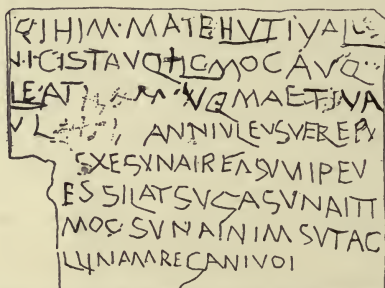 QIHIM·MATEHVTIVAL
NICISTAVQTLOMOCAVQ
LEATI M VQMAETINA
VL ANNIVLEVSVEREPV
SXESVNAIREASVMIPEV
ESSILATSVGASVNAITI
MOCSVNAINIMSVTAC
LLINAMREGANIVOI